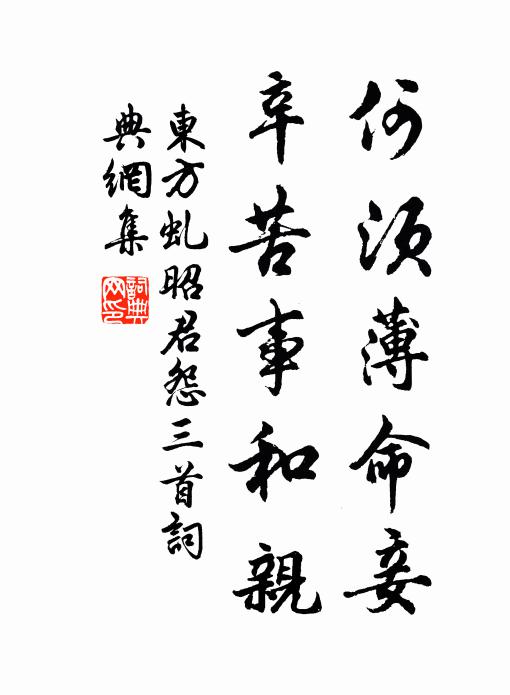 何須薄命妾
辛苦事和親
東方虬昭君怨三首詞
典網集
詞典网印